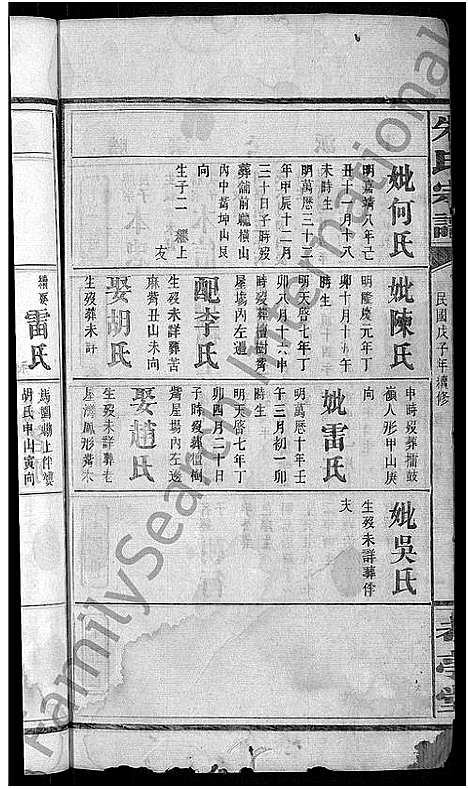 朱氏宗譜
民國戊子年續修
妣何氏
明嘉靖八年己
丑十一月十八
未時生
明萬歷三十二
年甲辰十二月
三十日子時歿
葬舖前壠橫山
內中嵩坤山艮
向
生子二 上
友
妣陳氏
明隆慶元年丁
卯十月十 午
時生
明天啓七年丁
卯八月十六申
時歿葬檀樹嘴
屋場內左邊
配李氏
生歿未詳葬苦
麻嵛丑山未向
娶胡氏
生歿葬未詳
申時歿葬擂鼓
嶺人形甲山庚
向
妣雷氏
明萬歷十年壬
午三月初一卯
時生
明天啓七年丁
卯四月二十日
子時歿葬檀樹
嘴屋場內左邊
娶趙氏
生歿未詳葬老
屋灣鳳形嘴
妣吳氏
生歿未詳葬伴
夫
續娶
雷氏
馬劉 上伴嫂
胡氏申山寅向
FamilySearch International